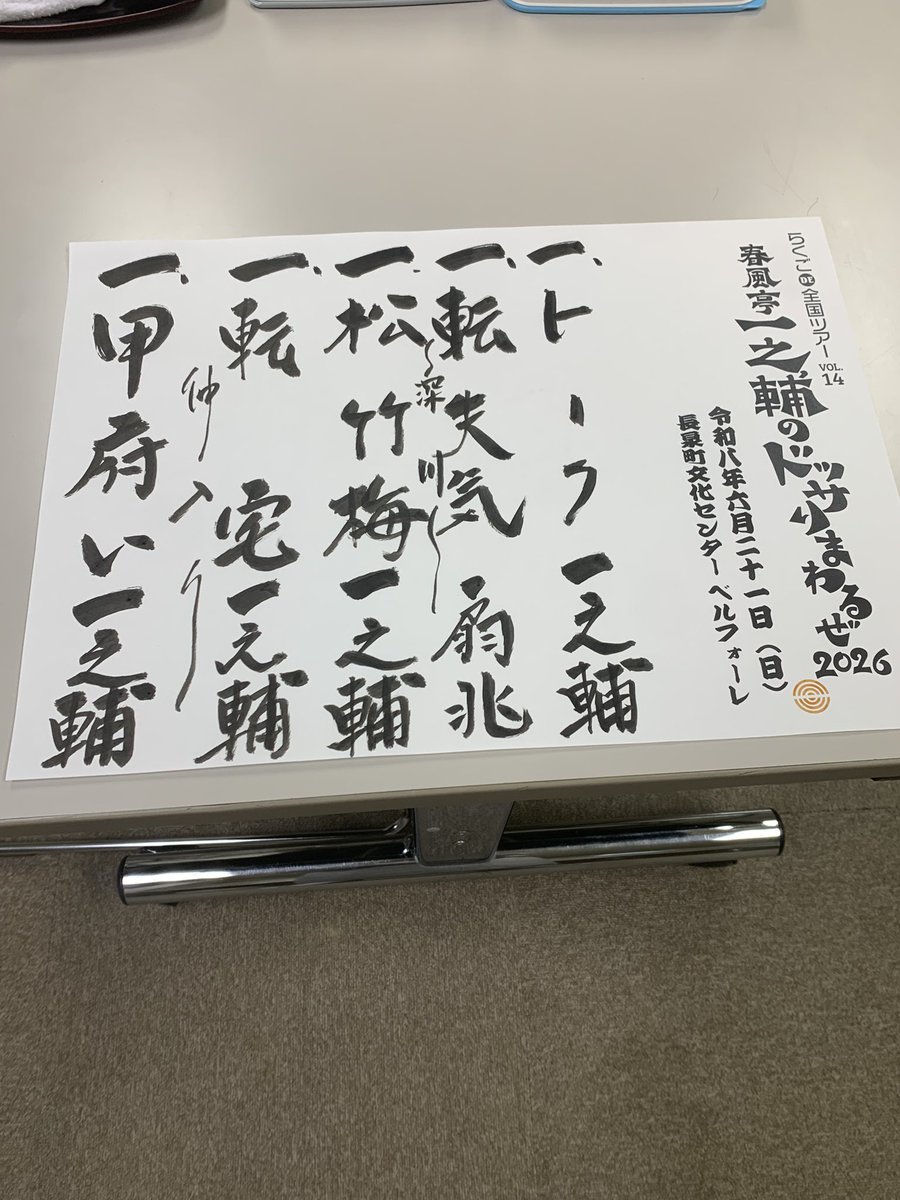 らくごDE全国ツアー VOL.14
春風亭一之輔のドッサりまわるぜ2026
令和八年六月二十一日（日）
長泉町文化センター ベルフォーレ
一、トーク 一之輔
一、転失気 扇兆
〜深川〜
一、松竹梅 一之輔
一、転宅 一之輔
仲入り
一、甲府い 一之輔